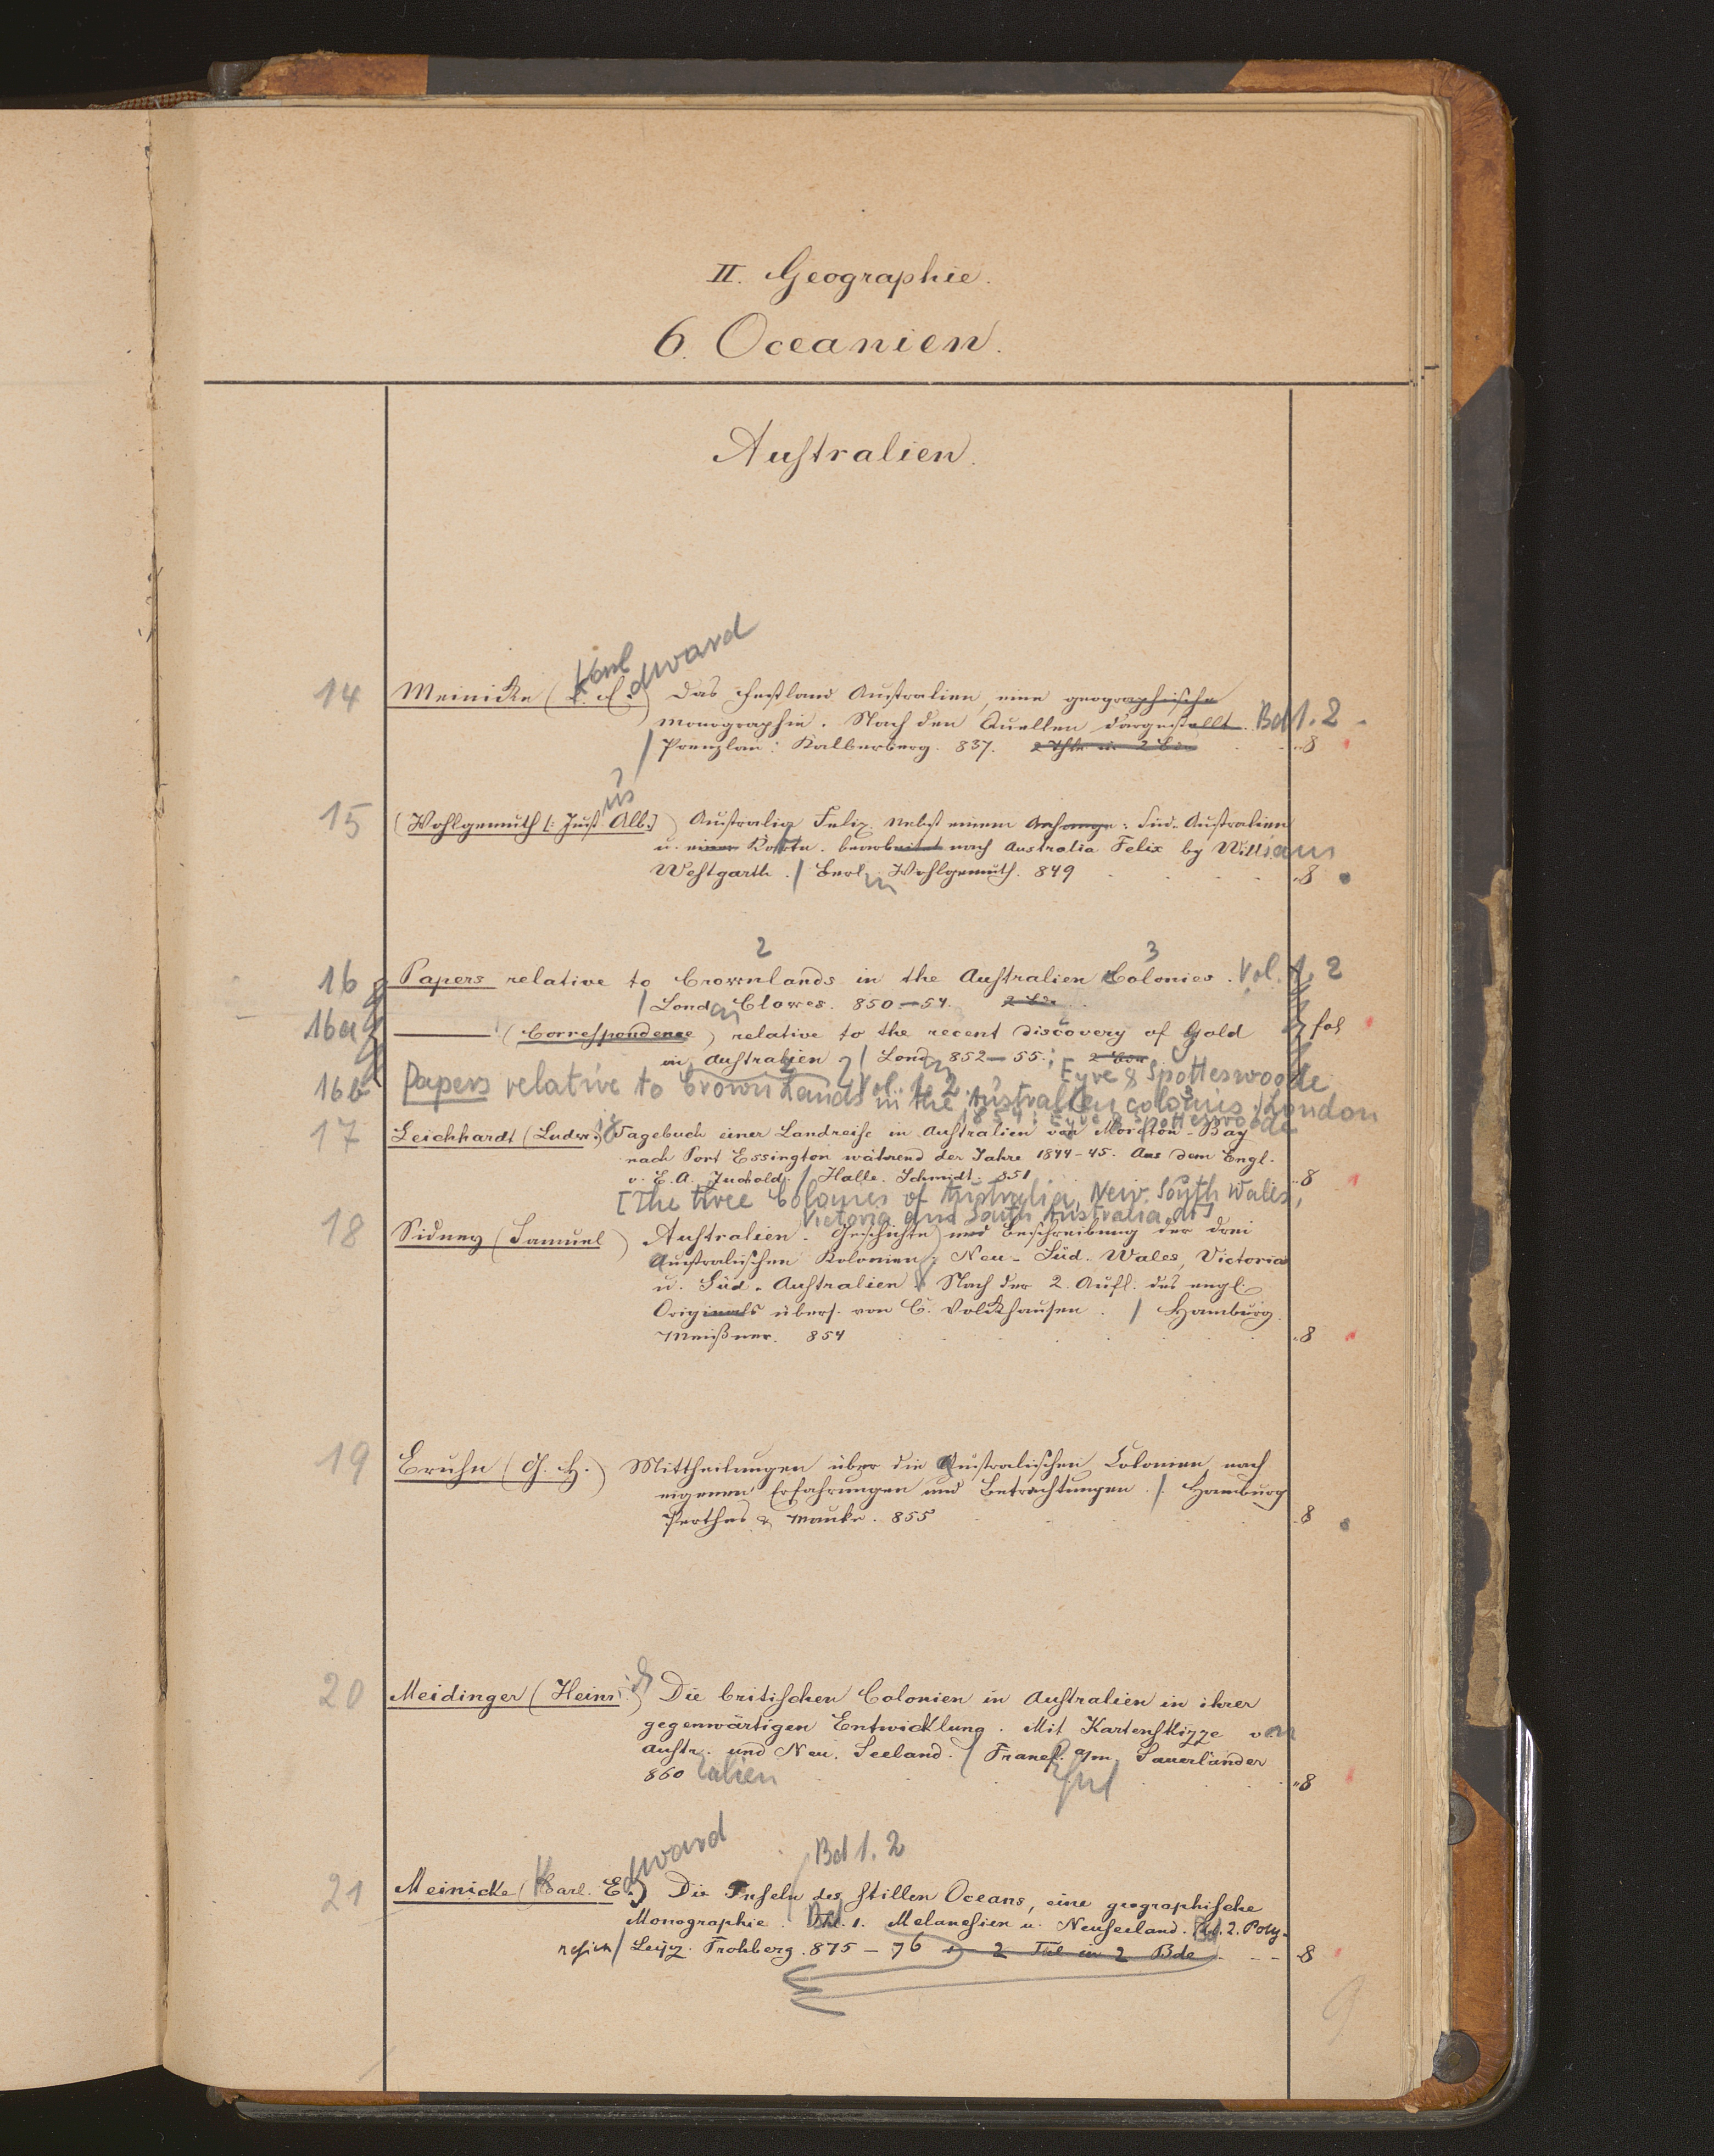 II. Geographie.
6. Oceanien.
Australien.
Karl dward
14 Meinicke (C. E.) Das Festland Australien, eine geographische
Monographie. Nach den Quellen dargestellt. Bd 1. 2
/ Prenzlau: Kalbersberg. 837. 8
us
15 (Wohlgemuth [: Just Alb:] ) Australia Felix. Nebst einem Anhange: Süd-Australien
u. einer Karte. bearbeitet nach Australia Felix by William
Westgarth. / Berlin Wohlgemuth. 849 8
2 3
16 Papers relative to Crownlands in the Australien Colonies. Vol. 1. 2
/ London Clowes. 850-54. 2 Bde
16a ——— (Correspondence) relative to the recent discovery of Gold fol
in Australien / London 852-55.; 2 Bde Eyre & Spotteswoode
Vol. 1. 2
16b Papers relative to Crown Lands in the Australien colonies / London
1854: Eyre & Spotteswoode
17 Leichhardt (Ludw.) Tagebuch einer Landreise in Australien von Moreton-Bay
nach Port Essington während der Jahre 1844-45. Aus dem Engl.
v. E. A. Zuchold. / Halle. Schmidt. 851 8
[The three Colonies of Australia, New South Wales,
Victoria and South Australia, dt]
18 Sidney (Samuel) Australien. Geschichte und Beschreibung der drei
Australischen Kolonien: Neu-Süd-Wales, Victoria
u. Süd-Australien. Nach der 2. Aufl. des engl.
Originals übers. von C. Volckhausen. / Hamburg.
Meißner. 854 8
19 Bruhn (G. H.) Mittheilungen über die Australischen Colonien nach
eigenen Erfahrungen und Betrachtungen. / Hamburg
Perthes & Mauke. 855 8
20 Meidinger (Heinr.) Die britischen Colonien in Australien in ihrer
gegenwärtigen Entwicklung. Mit Kartenskizze von
Austr. und Neu-Seeland. / Francf. a/m. Sauerländer
860 alien 8
dward Bd 1. 2
21 Meinicke (Karl. E.) Die Inseln des stillen Oceans, eine geographische
Monographie. Thl. 1. Melanesien u. Neuseeland. Bd. 2. Poly-
nesien / Leipz. Frohberg. 875-76 2 Thle in 2 Bde 8
9